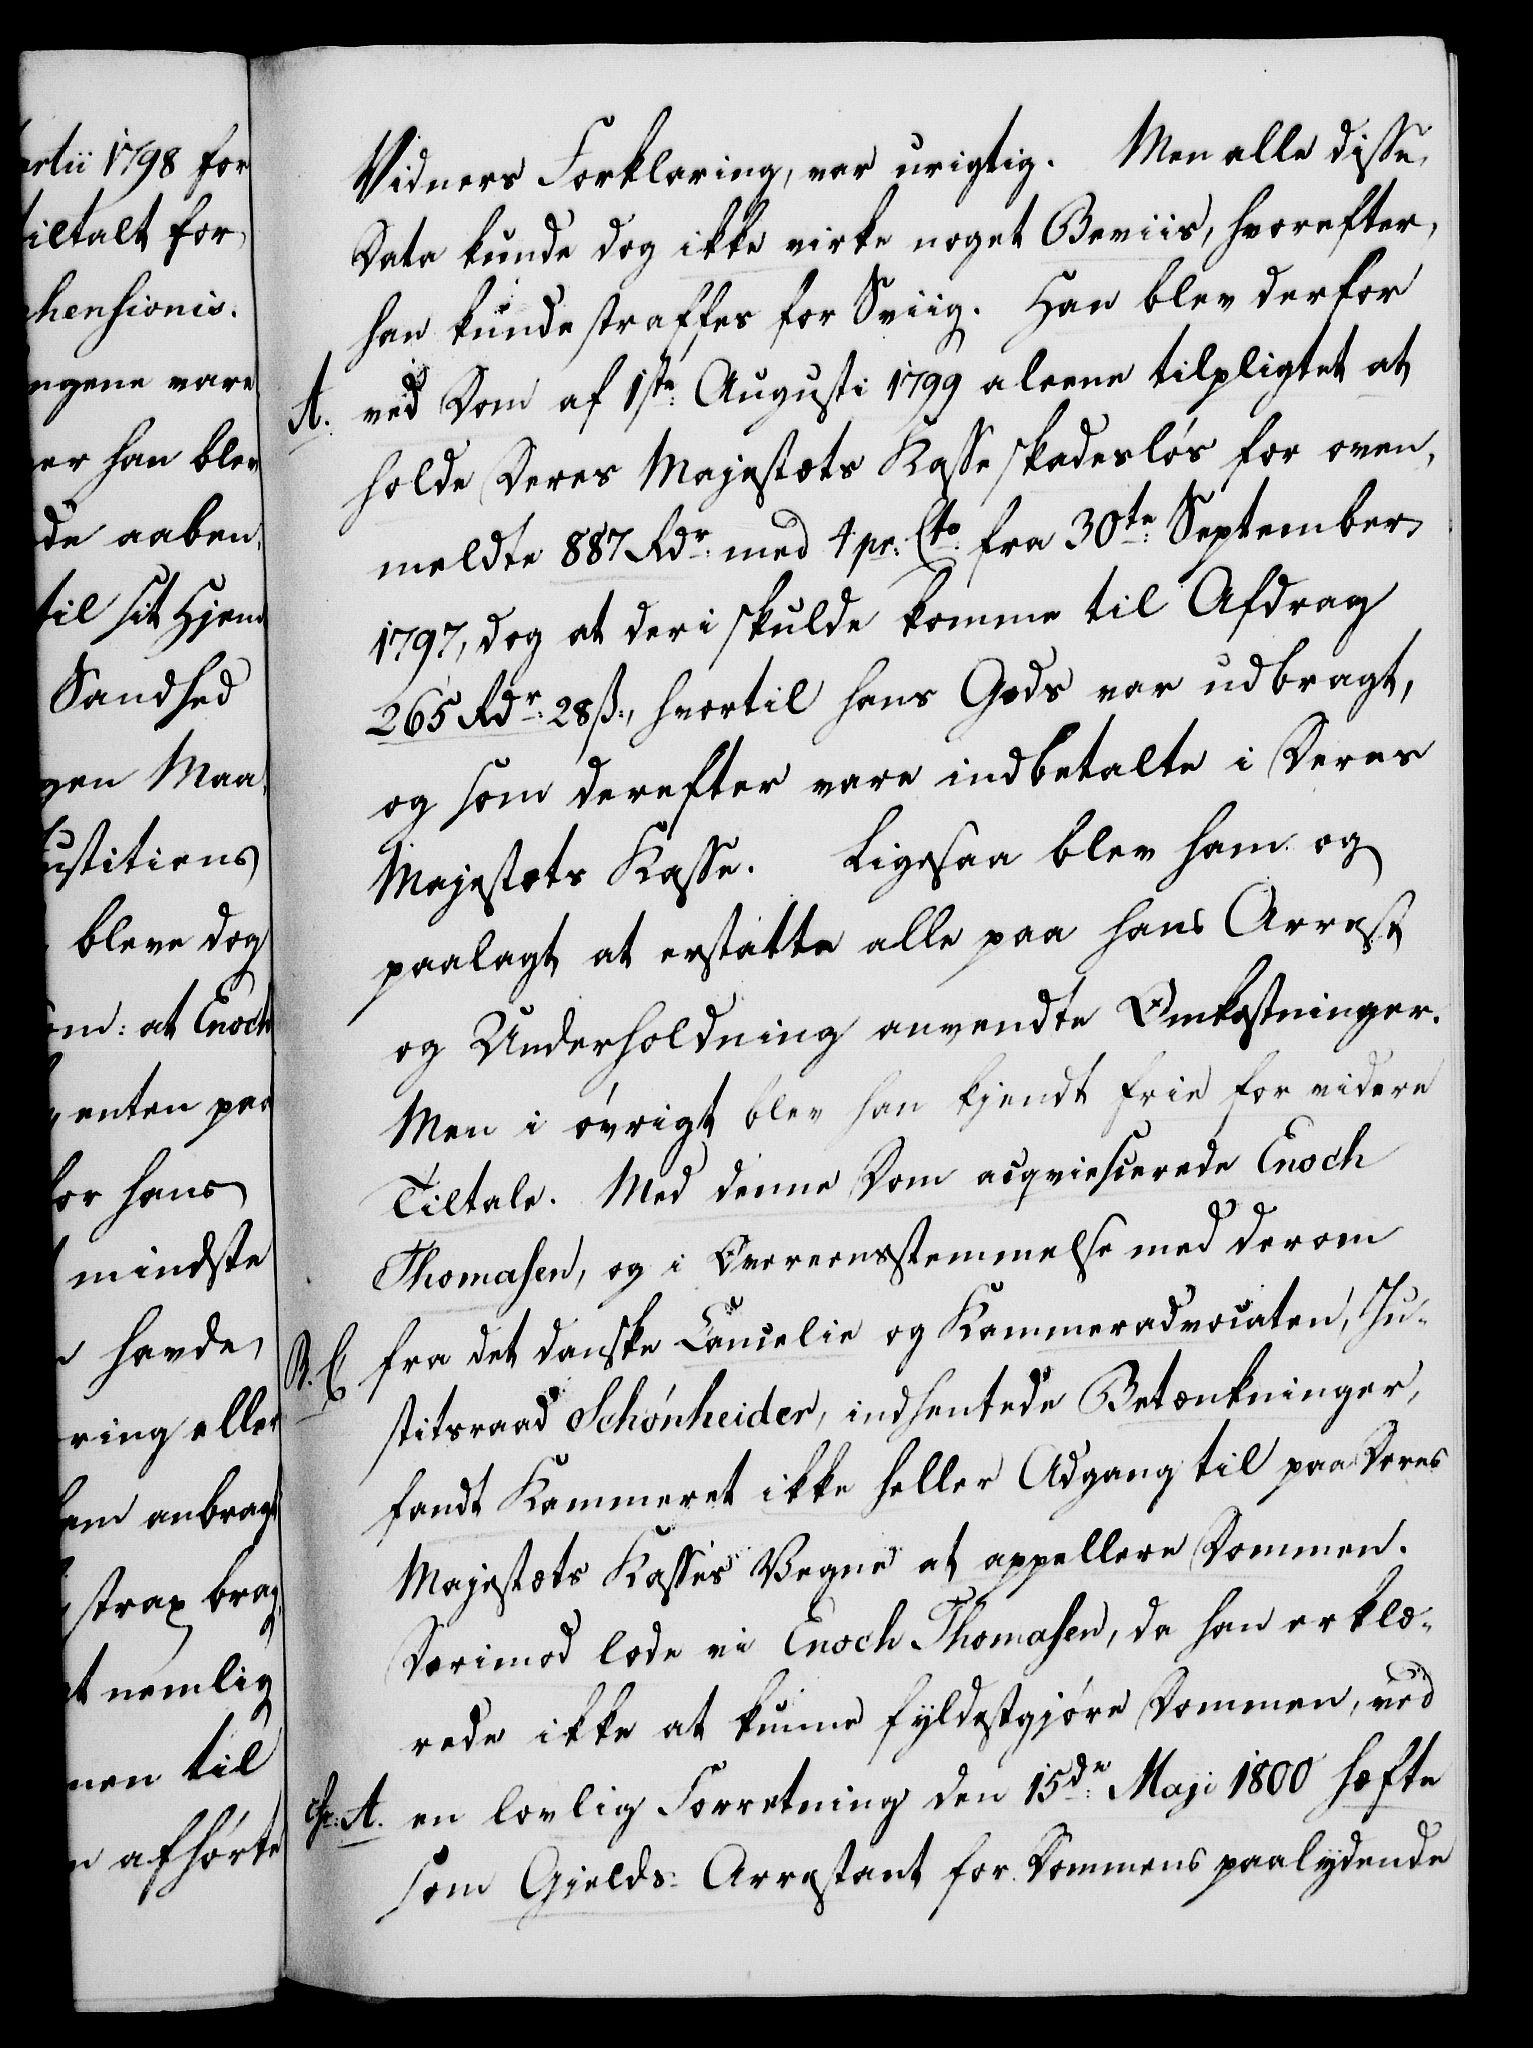 artii 1798 for
tiltalt for
ehensionis.
ngene vare
er han blev
de aaben,
til sit Hjem
Sandhed
gen Maa,
ustitiens
bleve dog
om: at Enoch
enten paa
for hans
mindste
havde,
ring eller
ham anbragt
strax brag,
at nemlig
nen til
n afhørte
Vidners Forklaring, var urigtig. Men alle disse
Data kunde dog ikke virke noget Beviis, hvorefter,
han kunde straffes for Sviig. Han blev derfor
A. ved Dom af 1ste: Augusti 1799 aleene tilpligtet at
holde Deres Majestæts Kasse skadesløs for oven,
meldte 887 Rdr: med 4 pr: Cto: fra 30te: September
1797, dog at deri skulde komme til Afdrag
265 Rdr: 28 ß:, hvortil hans Gods var udbragt,
og som derefter vare indbetalte i Deres
Majestæts Kasse. Ligesaa blev ham og
paalagt at erstatte alle paa hans Arrest
og Underholdning anvendte Omkostninger.
Men i øvrigt blev han kjendt frie for videre
Tiltale. Med denne Dom acqviescerede Enoch
Thomasen, og i Overeensstemmelse med derom
B. C. fra det danske Cancelie og Kammeradvocaten, Ju-
stitsraad Schønheider, indhentede Betænkninger,
fandt Kammeret ikke heller Adgang til paa Deres
Majestæts Kasses Vegne at appellere Dommen.
Derimod lode vi Enoch Thomasen, da han erklæ-
rede ikke at kunne fyldestgjøre Dommen, ved
cfr: A. en lovlig Forretning den 15de: Maji 1800 hæfte
som Gjelds-Arrestant for Dommens paalydende